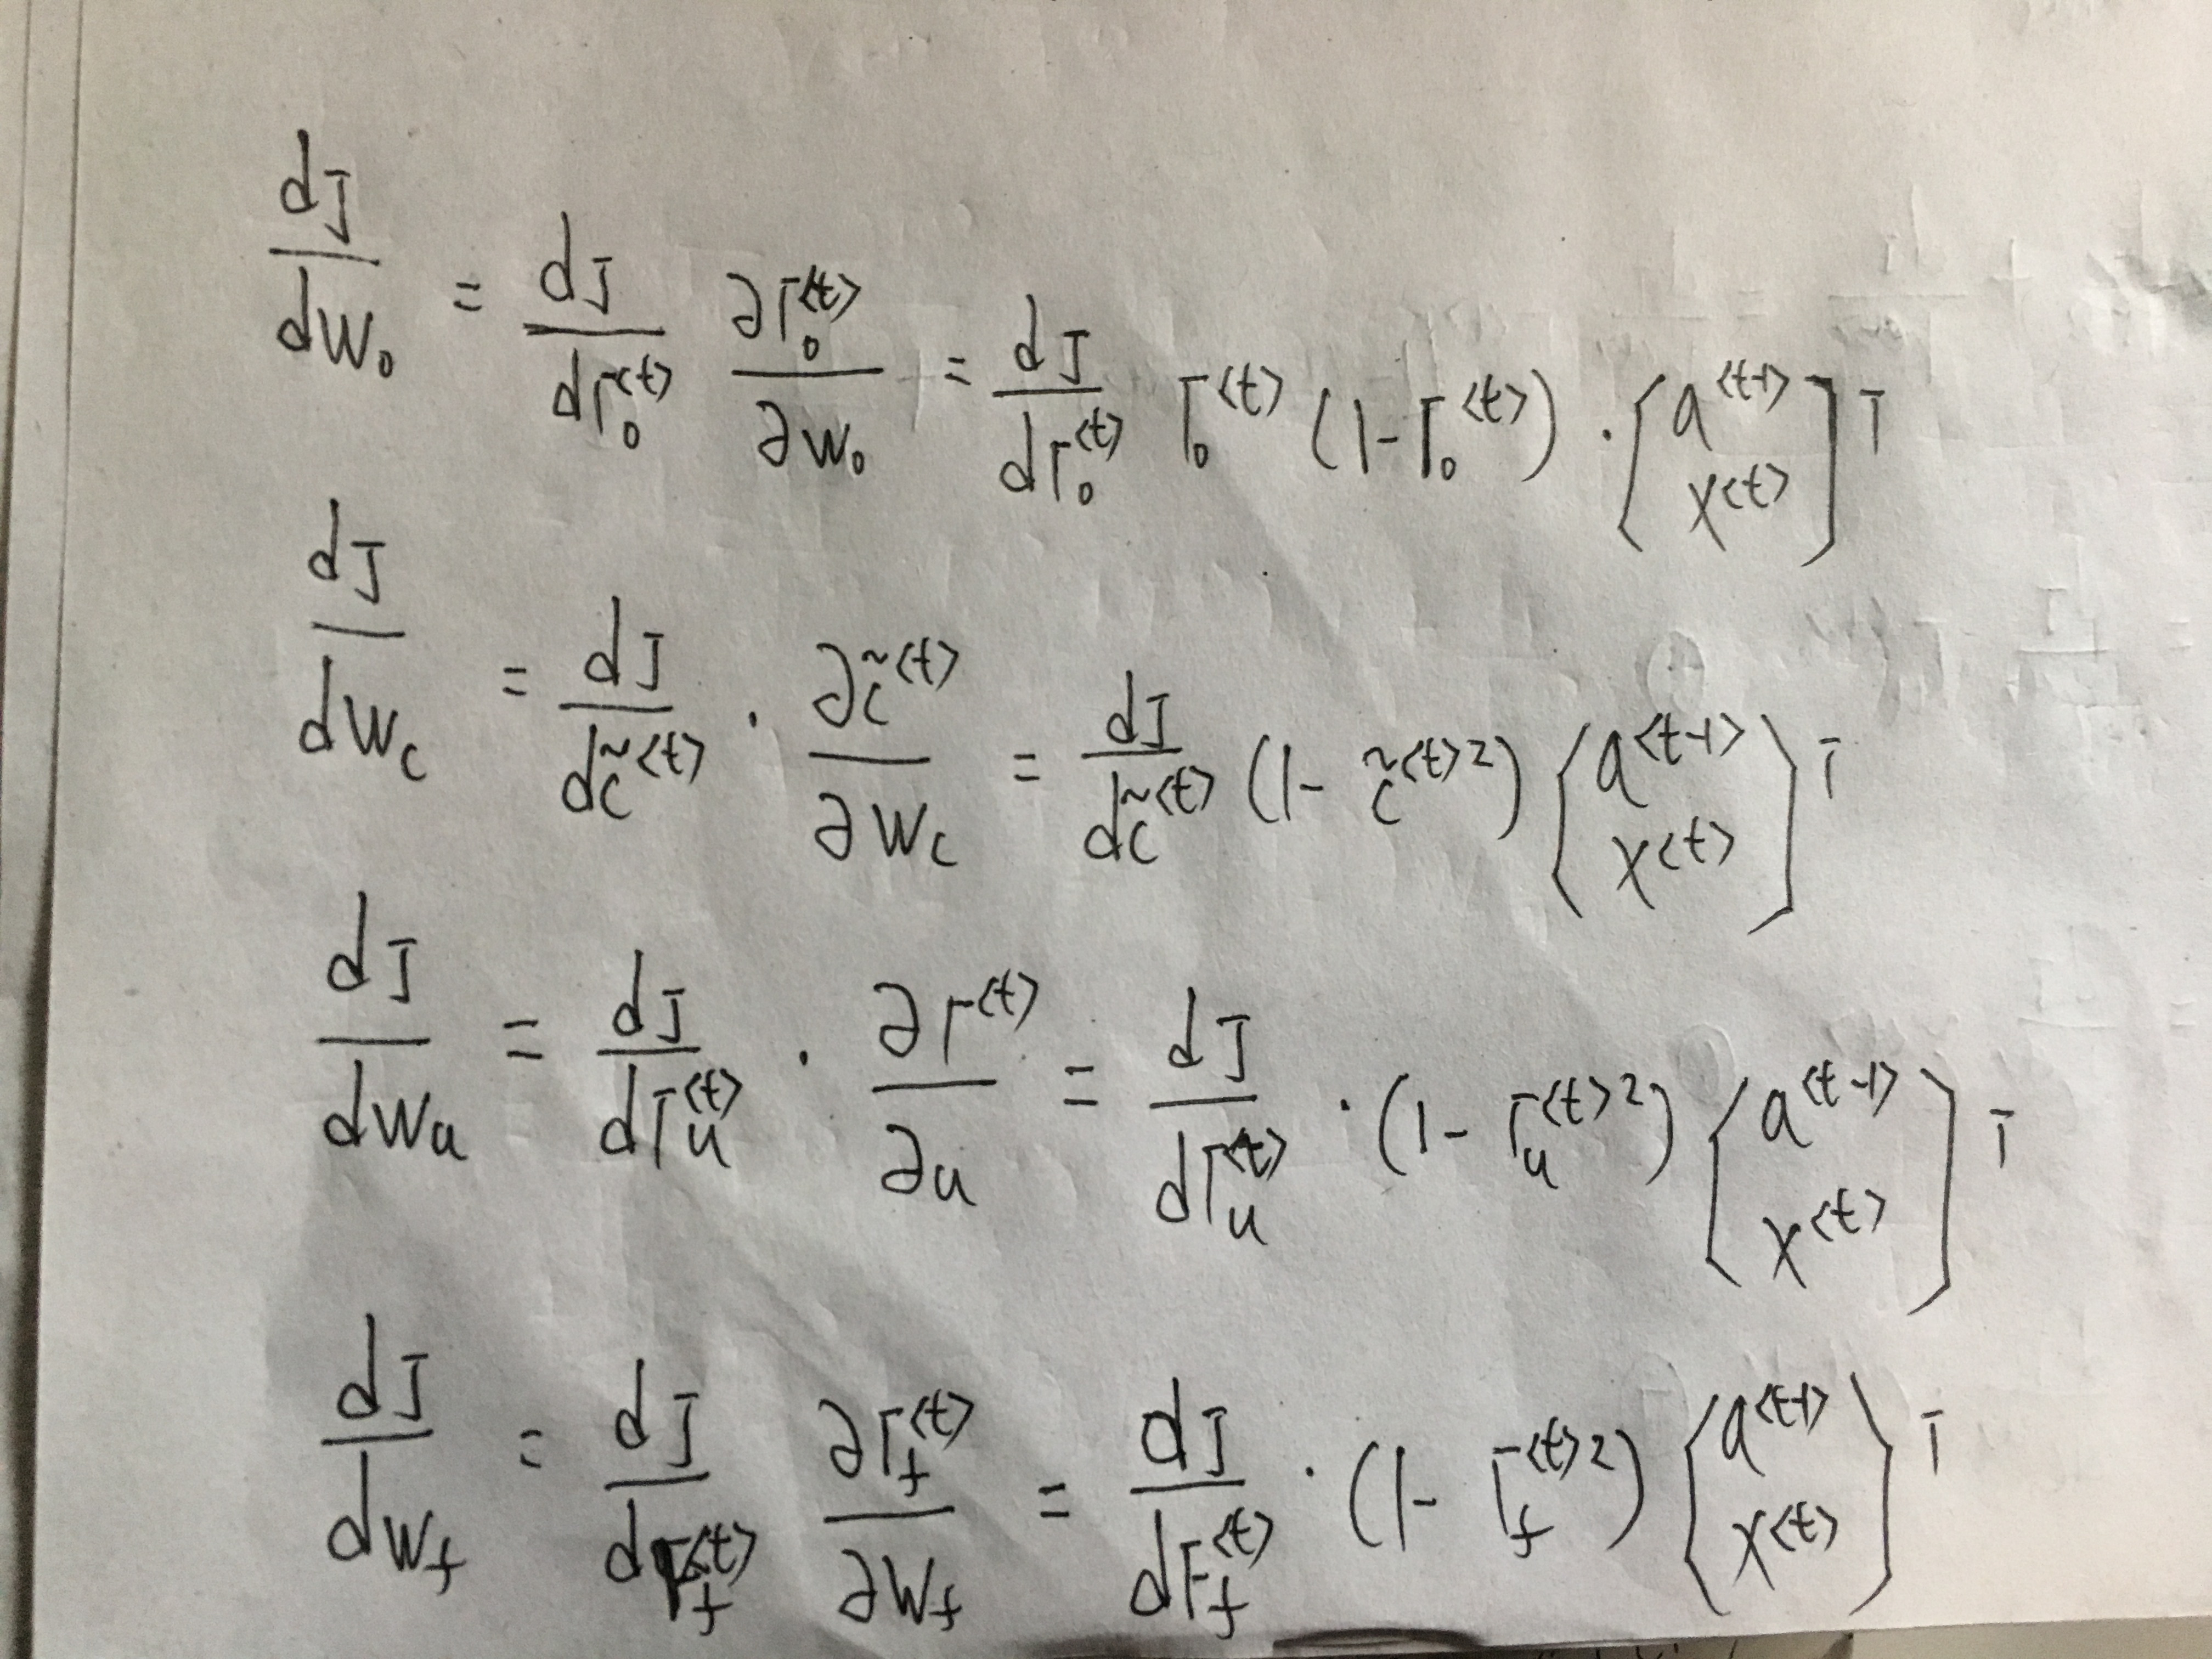 dJ/dW₀ = dJ/dΓ₀^<t> ∂Γ₀^<t>/∂W₀ = dJ/dΓ₀^<t> Γ₀^<t> (1-Γ₀^<t>) · [a^<t-1> x^<t>]^T
dJ/dW_c = dJ/dc̃^<t> · ∂c̃^<t>/∂W_c = dJ/dc̃^<t> (1- c̃^<t>2) [a^<t-1> x^<t>]^T
dJ/dW_u = dJ/dΓ_u^<t> · ∂Γ^<t>/∂u = dJ/dΓ_u^<t> · (1- Γ_u^<t>2) [a^<t-1> x^<t>]^T
dJ/dW_f = dJ/dΓ_f^<t> ∂Γ_f^<t>/∂W_f = dJ/dΓ_f^<t> · (1- Γ_f^<t>2) [a^<t-1> x^<t>]^T